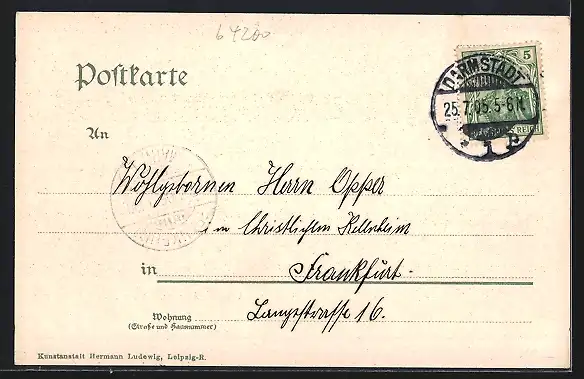 64200
Postkarte
5
DARMSTADT
25.7.05.5-6N.
1 P
REICH
An
Wohlgebornen Herrn Opper
im Christlichen Kellnheim
in Frankfurt.
Langestrasse 16.
Wohnung
(Straße und Hausnummer)
Kunstanstalt Hermann Ludewig, Leipzig-R.